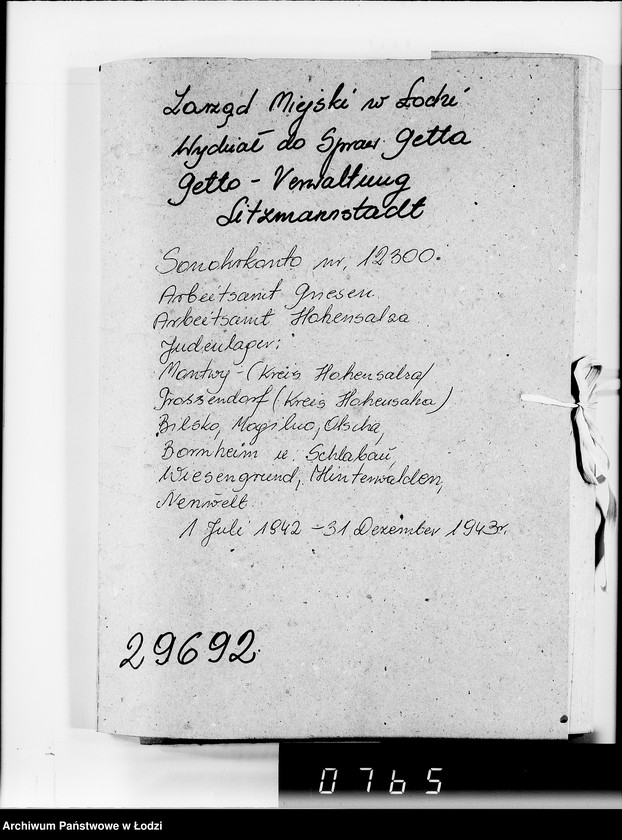 Zarząd Miejski w Łodzi
Wydział do Spraw Getta
Getto - Verwaltung
Litzmannstadt
Sonderkonto nr. 12300.
Arbeitsamt Gnesen
Arbeitsamt Hohensalza
Judenlager:
Montwy - (Kreis Hohensalza)
Grossendorf (Kreis Hohensalza)
Bilsko, Mogilno, Olscha,
Bornheim u. Schlabau,
Wiesengrund, Hinterwalden,
Nenwelt
1 Juli 1942 - 31 Dezember 1943r.
29692
0765
Archiwum Państwowe w Łodzi